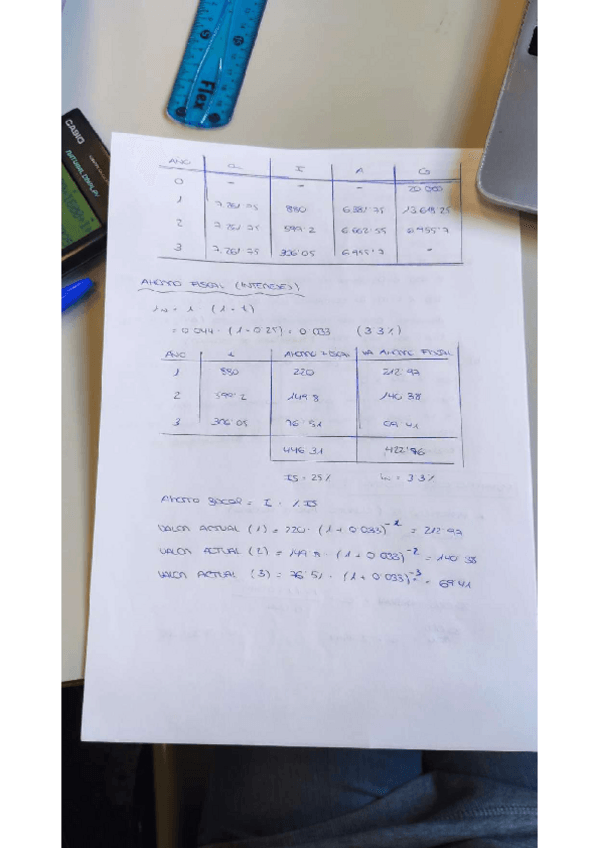 Flex
CASIO
NATURAL DISPLAY
AÑO a I A Cs
0 - - - 20.000
1 7.261'75 880 6.381'75 13.618'25
2 7.261'75 599'2 6.662'55 6.955'7
3 7.261'75 306'05 6.955'7 -
AHORRO FISCAL (INTERESES)
= 0'044 · (1 - 0'25) = 0'033 (3'3%)
AÑO I AHORRO FISCAL VA AHORRO FISCAL
1 880 220 212'97
2 599'2 149'8 140'38
3 306'05 76'51 69'41
446'31 422'76
IS = 25% in = 3'3%
AHORRO FISCAL = I · % IS
VALOR ACTUAL (1) = 220 · (1 + 0'033)^-1 = 212'97
VALOR ACTUAL (2) = 149'8 · (1 + 0'033)^-2 = 140'38
VALOR ACTUAL (3) = 76'51 · (1 + 0'033)^-3 = 69'41